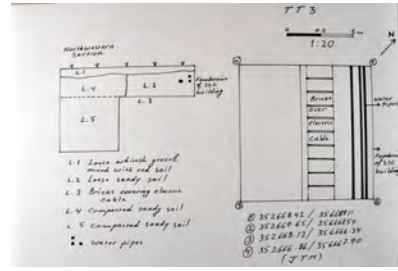 TT3
0 0.5 1m
1:20
N
Northwestern
Section
L.1
L.4
L.2
L.3
L.5
Foundation
of SSC
building
L.1 Loose whitish gravel
mixed with red soil
L.2 Loose sandy soil
L.3 Bricks covering electric
cable
L.4 Compacted sandy soil
L.5 Compacted sandy soil
water pipes
Bricks
over
electric
cable
Water
Pipes
Foundation
of SSC
building
① 352668.42/
② 352669.65/
③ 352668.12/ 356666.34
④ 352666.86/ 356667.90
(JTM)